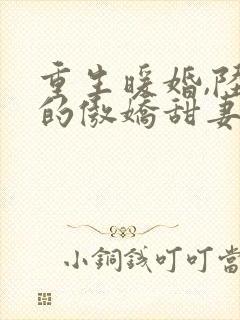 重生暖婚,陸
的傲嬌甜妻
小銅錢叮叮當